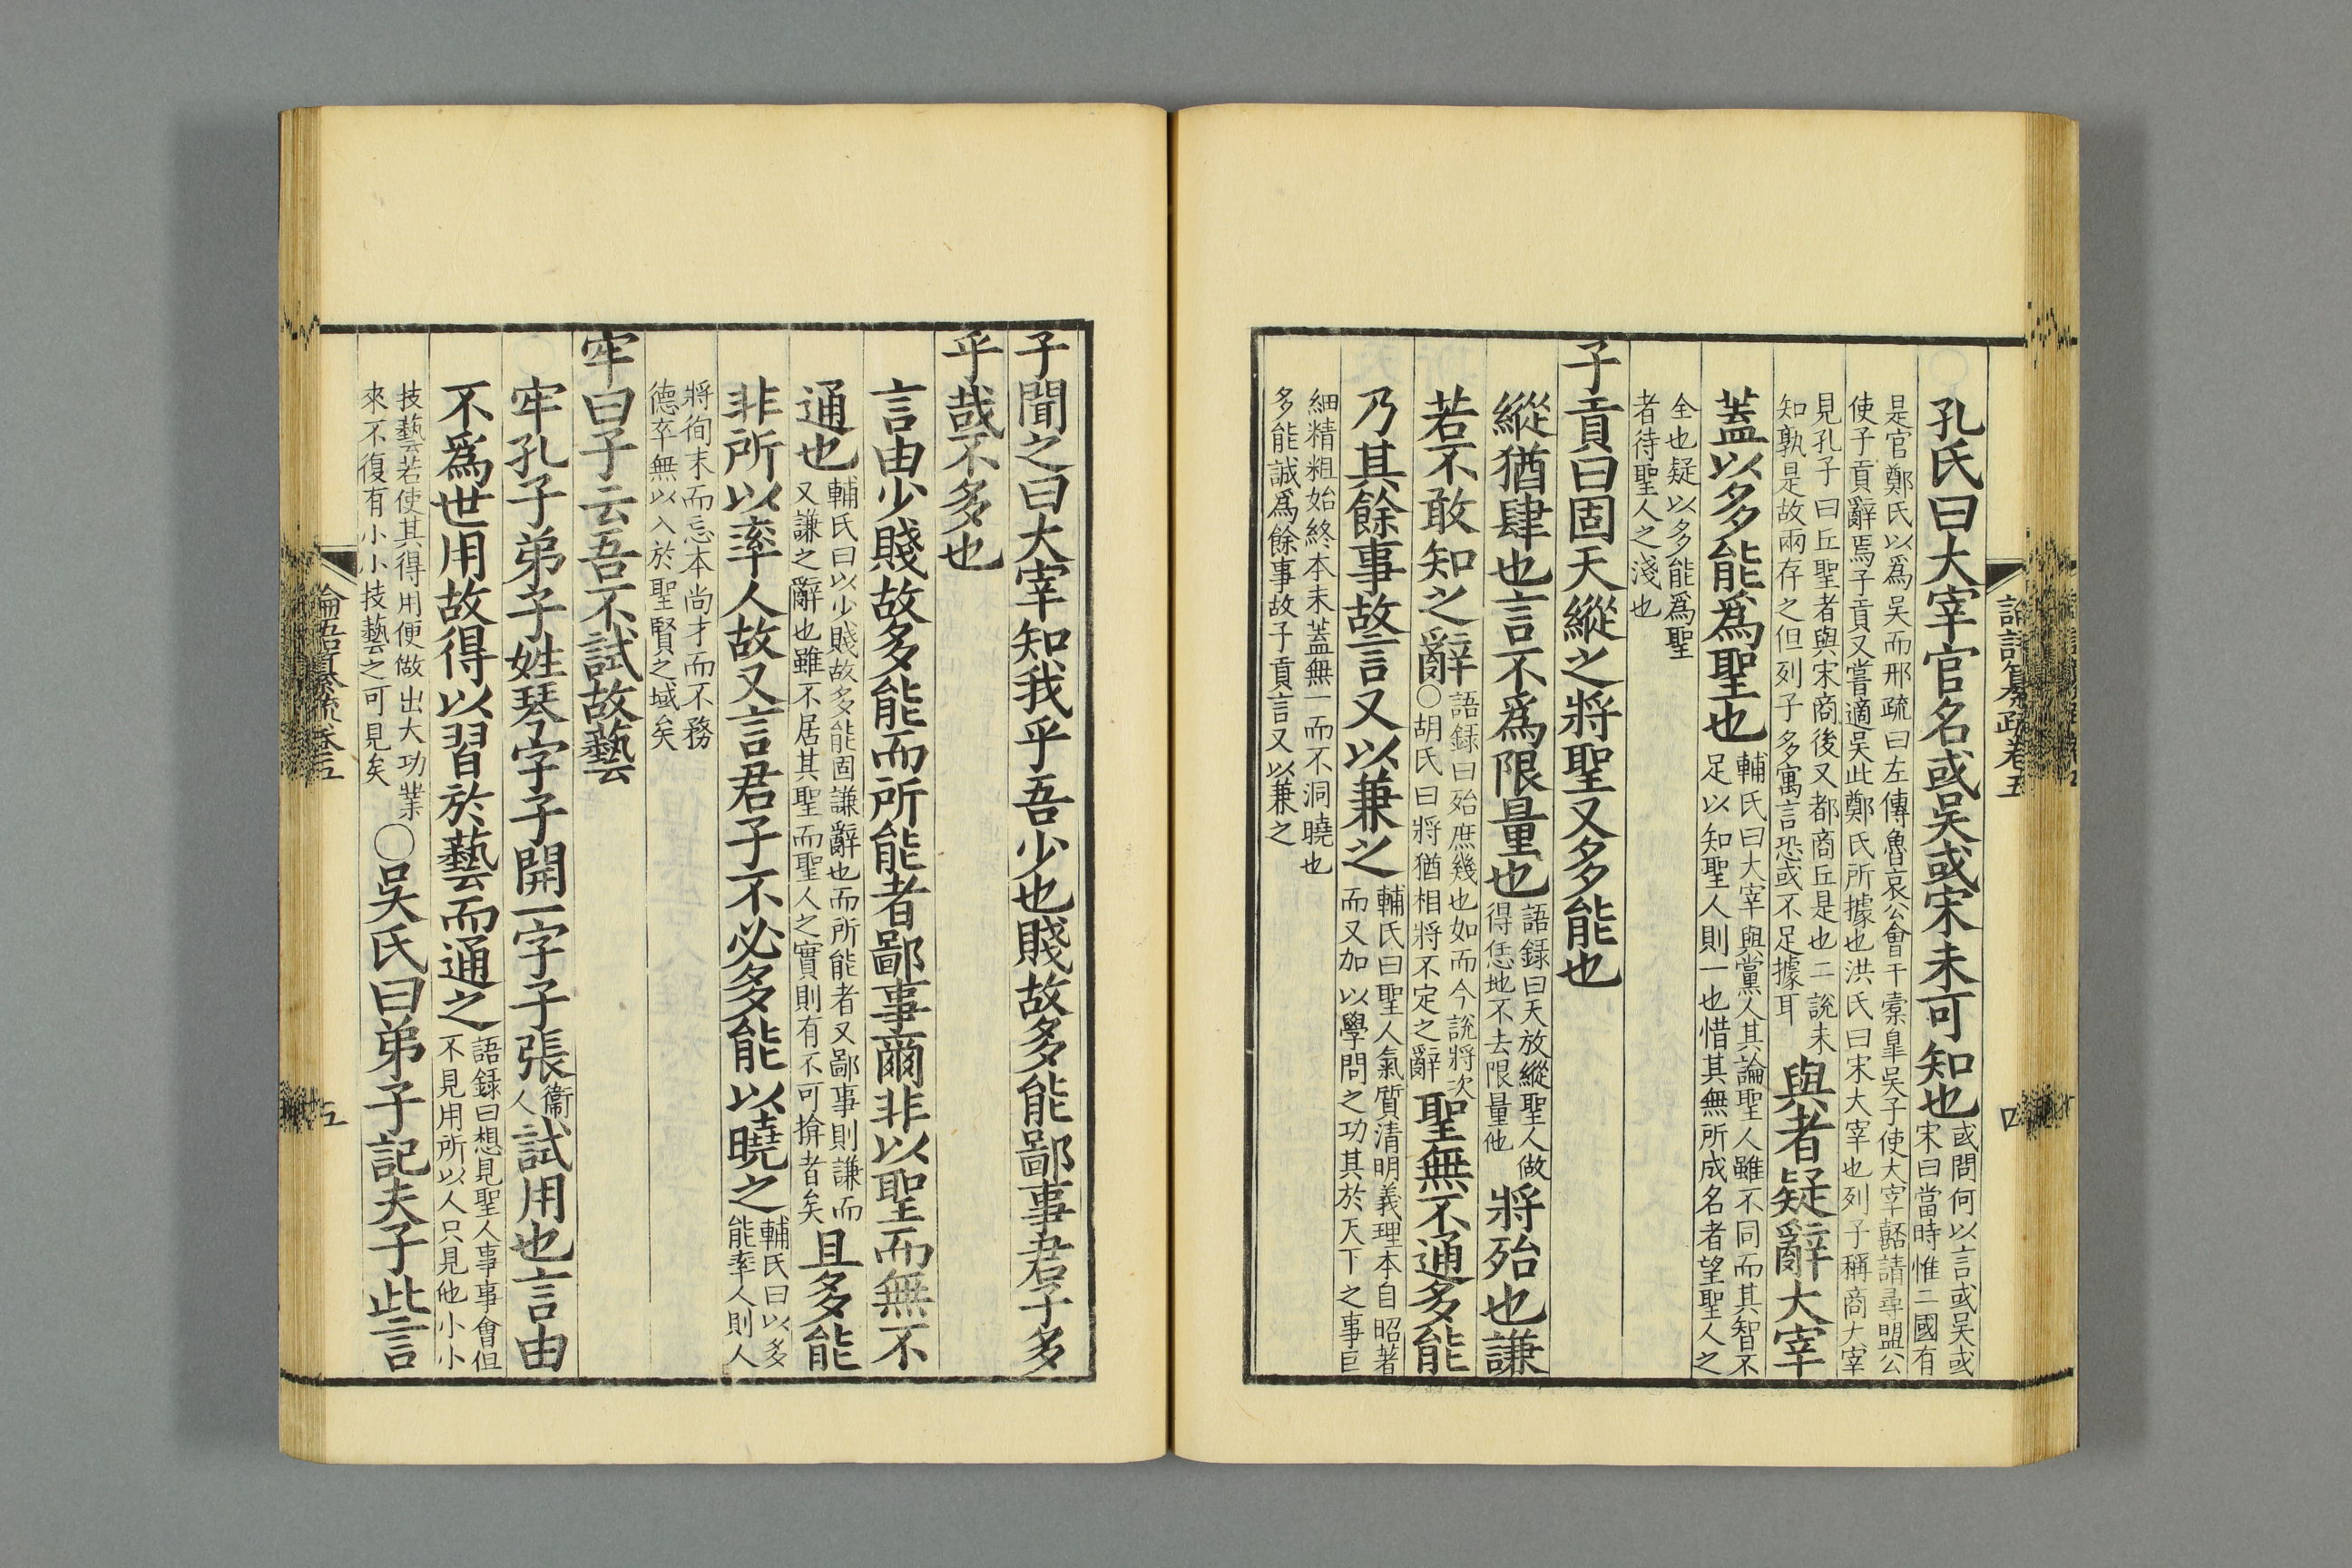 論語纂疏卷五
四
孔氏曰大宰官名或吳或宋未可知也或問何以言或吳或
宋曰當時惟二國有
是官鄭氏以爲吳而邢疏曰左傳魯哀公會于橐皐吳子使大宰嚭請尋盟公
使子貢辭焉子貢又嘗適吳此鄭氏所據也洪氏曰宋大宰也列子稱商大宰
見孔子曰丘聖者與宋商後又都商丘是也二說未
知孰是故兩存之但列子多寓言恐或不足據耳
與者疑辭大宰
蓋以多能爲聖也輔氏曰大宰與黨人其論聖人雖不同而其智不
足以知聖人則一也惜其無所成名者望聖人之
全也疑以多能爲聖
者待聖人之淺也
子貢曰固天縱之將聖又多能也
縱猶肆也言不爲限量也語録曰天放縱聖人做
得恁地不去限量他
將殆也謙
若不敢知之辭語録曰殆庶幾也如而今說將次
○胡氏曰將猶相將不定之辭
聖無不通多能
乃其餘事故言又以兼之輔氏曰聖人氣質清明義理本自昭著
而又加以學問之功其於天下之事巨
細精粗始終本末蓋無一而不洞曉也
多能誠爲餘事故子貢言又以兼之
子聞之曰大宰知我乎吾少也賤故多能鄙事君子多
乎哉不多也
言由少賤故多能而所能者鄙事爾非以聖而無不
通也輔氏曰以少賤故多能固謙辭也而所能者又鄙事則謙而
又謙之辭也雖不居其聖而聖人之實則有不可揜者矣
且多能
非所以率人故又言君子不必多能以曉之輔氏曰以多
能率人則人
將徇末而忘本尚才而不務
德卒無以入於聖賢之域矣
牢曰子云吾不試故藝
牢孔子弟子姓琴字子開一字子張衞
人
試用也言由
不爲世用故得以習於藝而通之語録曰想見聖人事事會但
不見用所以人只見他小小
技藝若使其得用便做出大功業
來不復有小小技藝之可見矣
○吳氏曰弟子記夫子此言
論語纂疏卷五
五